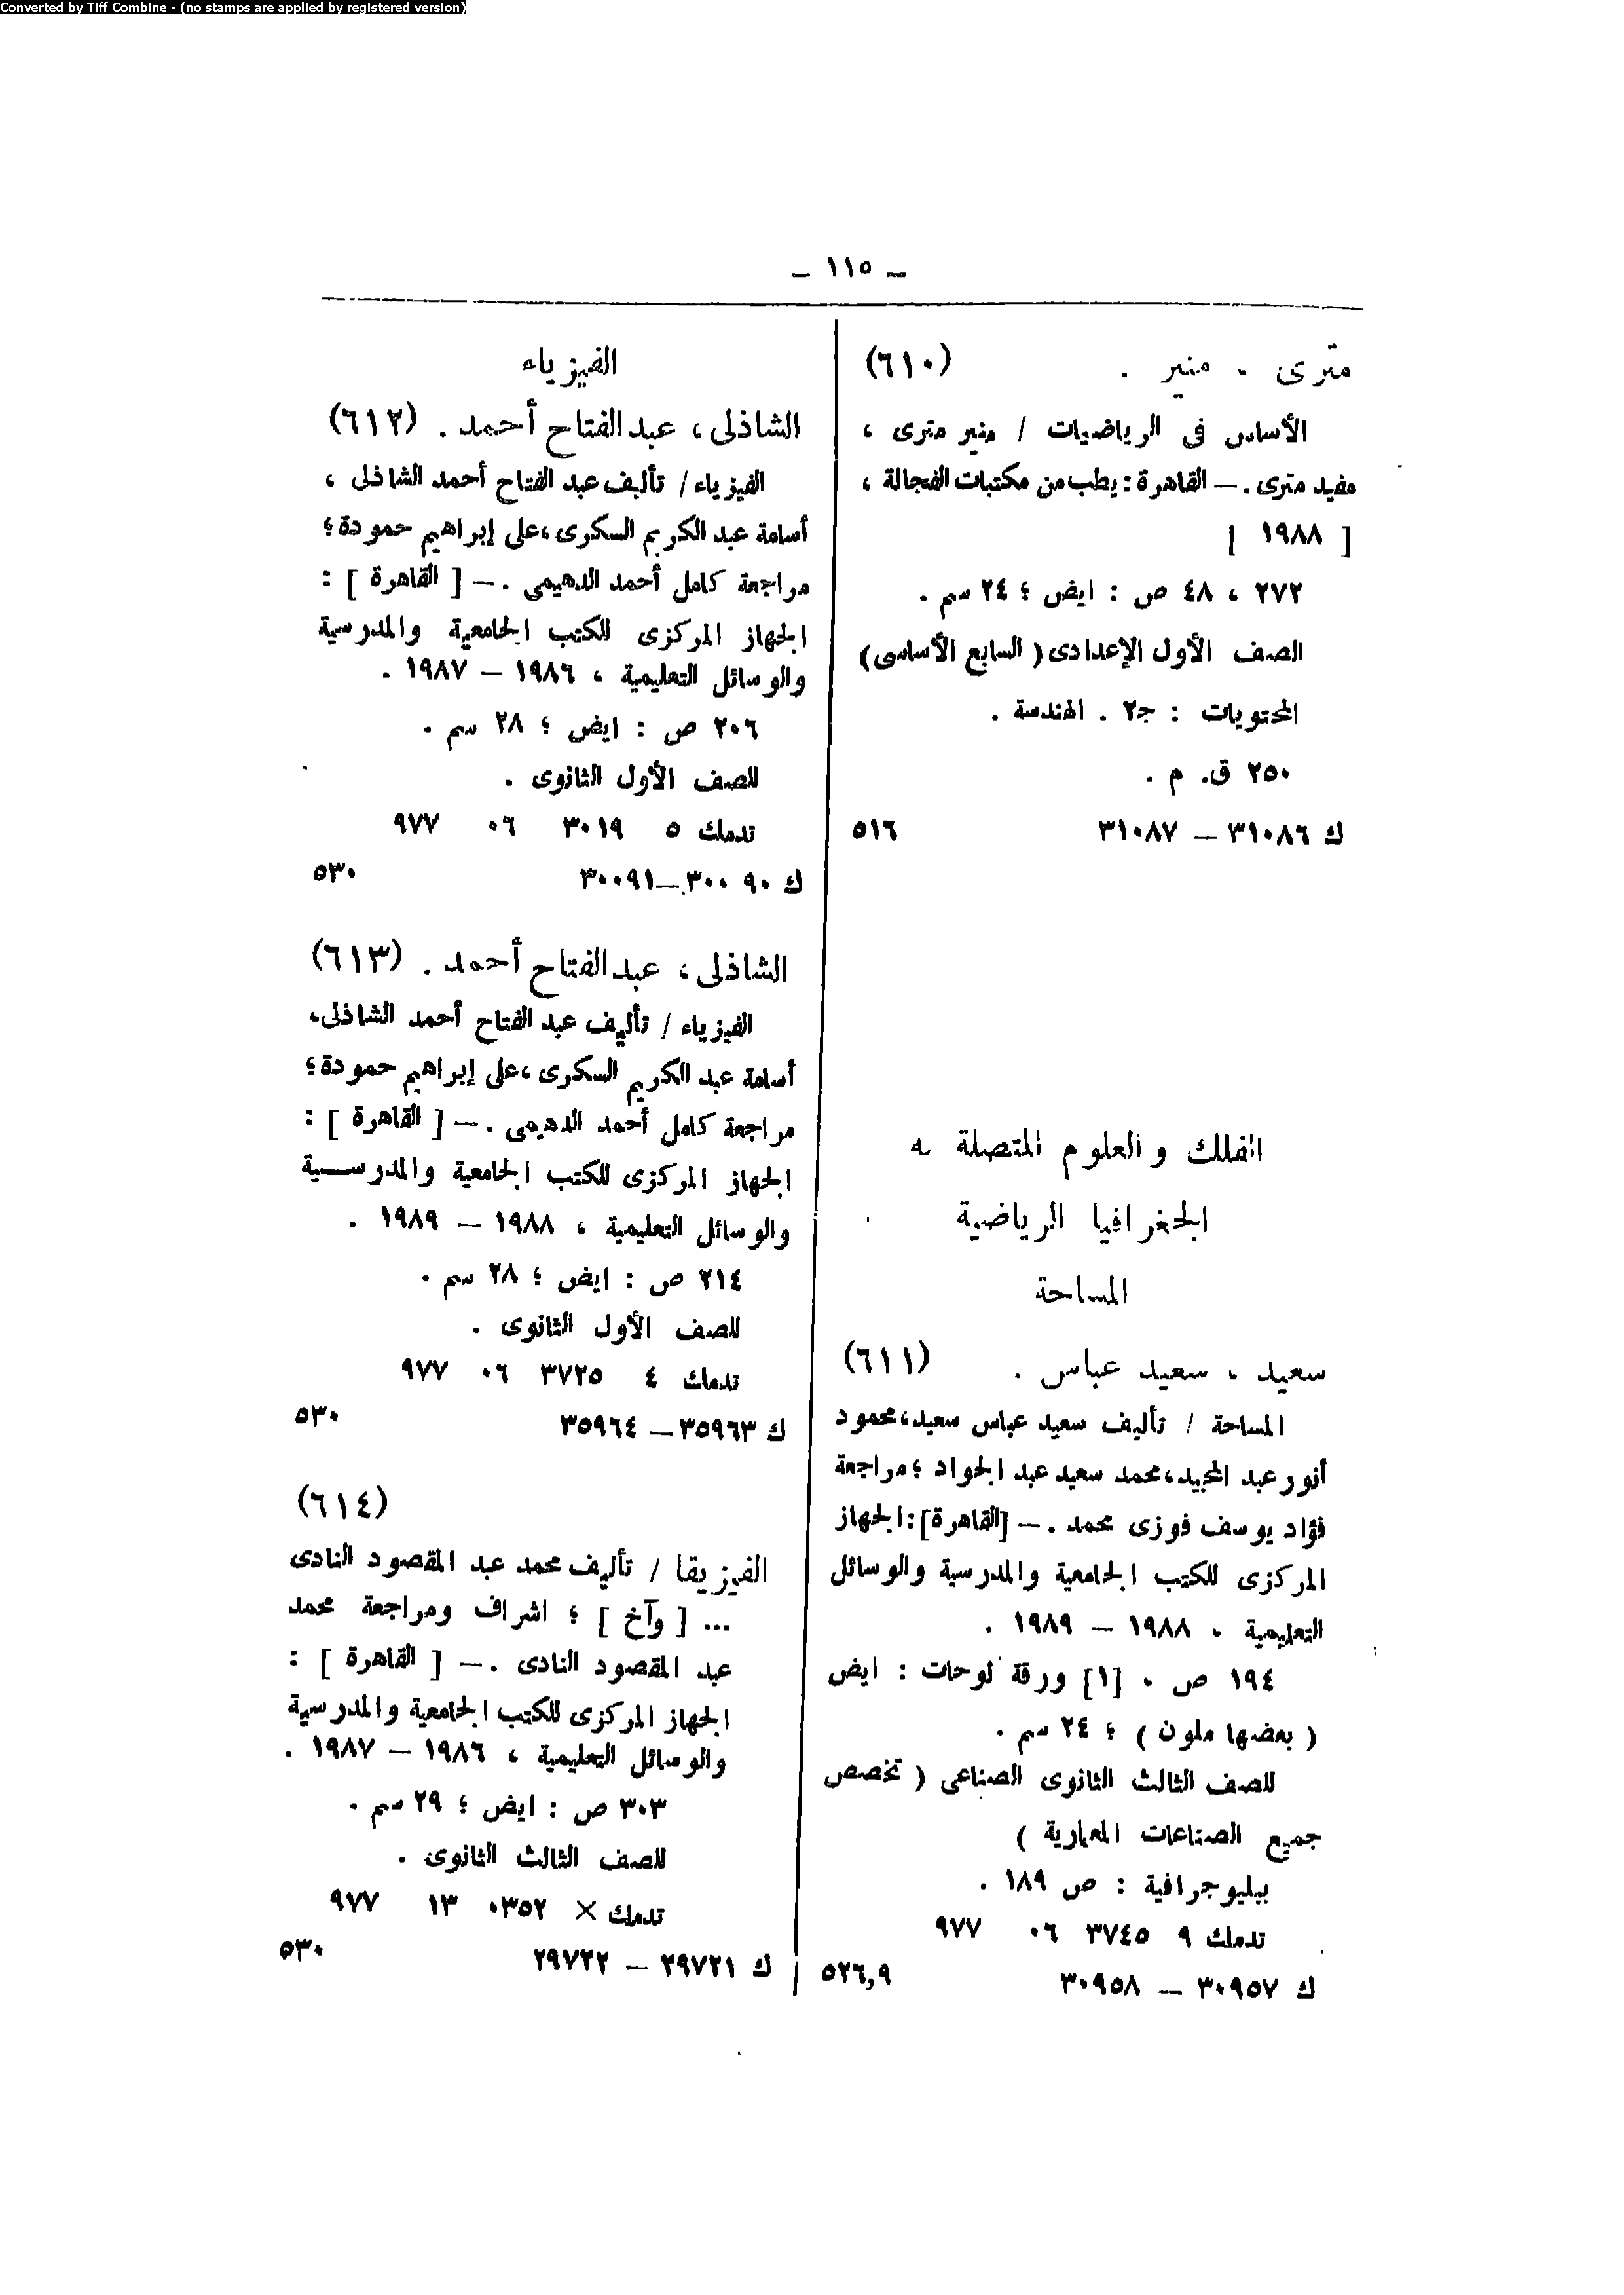 Converted by Tiff Combine - (no stamps are applied by registered version)
– ١١٥ –
مترى ، منير . (٦١٠)
الأساس فى الرياضيات / منير مترى ،
مفيد مترى . – القاهرة : يطب من مكتبات الفجالة ،
[ ١٩٨٨ ]
٢٧٢ ، ٤٨ ص : ايض ؛ ٢٤ سم .
الصف الأول الإعدادى ( السابع الأساسى )
المحتويات : جـ٢ . الهندسة .
٢٥٠ ق. م .
ك ٣١٠٨٦ – ٣١٠٨٧ ٥١٦
الفلك والعلوم المتصلة به
الجغرافيا الرياضية
المساحة
سعيد ، سعيد عباس . (٦١١)
المساحة / تأليف سعيد عباس سعيد ، محمود
أنور عبد المجيد ، محمد سعيد عبد الجواد ؛ مراجعة
فؤاد يوسف فوزى محمد . – [القاهرة] : الجهاز
المركزى للكتب الجامعية والمدرسية والوسائل
التعليمية ، ١٩٨٨ – ١٩٨٩ .
١٩٤ ص ، [١] ورقة لوحات : ايض
( بعضها ملون ) ؛ ٢٤ سم .
للصف الثالث الثانوى الصناعى ( تخصص
جميع الصناعات المعمارية )
ببليوجرافية : ص ١٨٩ .
تدمك ٩ ٣٧٤٥ ٠٦ ٩٧٧
ك ٣٠٩٥٧ – ٣٠٩٥٨ ٥٢٦,٩
الفيزياء
الشاذلى ، عبد الفتاح أحمد . (٦١٢)
الفيزياء / تأليف عبد الفتاح أحمد الشاذلى ،
أسامة عبد الكريم السكرى ، على إبراهيم حمودة ؛
مراجعة كامل أحمد الدهيمى . – [ القاهرة ] :
الجهاز المركزى للكتب الجامعية والمدرسية
والوسائل التعليمية ، ١٩٨٦ – ١٩٨٧ .
٢٠٦ ص : ايض ؛ ٢٨ سم .
للصف الأول الثانوى .
تدمك ٥ ٣٠١٩ ٠٦ ٩٧٧
ك ٣٠٠٩٠ – ٣٠٠٩١ ٥٣٠
الشاذلى ، عبد الفتاح أحمد . (٦١٣)
الفيزياء / تأليف عبد الفتاح أحمد الشاذلى ،
أسامة عبد الكريم السكرى ، على إبراهيم حمودة ؛
مراجعة كامل أحمد الدهيمى . – [ القاهرة ] :
الجهاز المركزى للكتب الجامعية والمدرسية
والوسائل التعليمية ، ١٩٨٨ – ١٩٨٩ .
٢١٤ ص : ايض ؛ ٢٨ سم .
للصف الأول الثانوى .
تدمك ٤ ٣٧٢٥ ٠٦ ٩٧٧
ك ٣٥٩٦٣ – ٣٥٩٦٤ ٥٣٠
(٦١٤)
الفيزيقا / تأليف محمد عبد المقصود النادى
... [ وآخ ] ؛ اشراف ومراجعة محمد
عبد المقصود النادى . – [ القاهرة ] :
الجهاز المركزى للكتب الجامعية والمدرسية
والوسائل التعليمية ، ١٩٨٦ – ١٩٨٧ .
٣٠٣ ص : ايض ؛ ٢٩ سم .
للصف الثالث الثانوى .
تدمك × ٠٣٥٢ ١٣ ٩٧٧
ك ٢٩٧٢١ – ٢٩٧٢٢ ٥٣٠